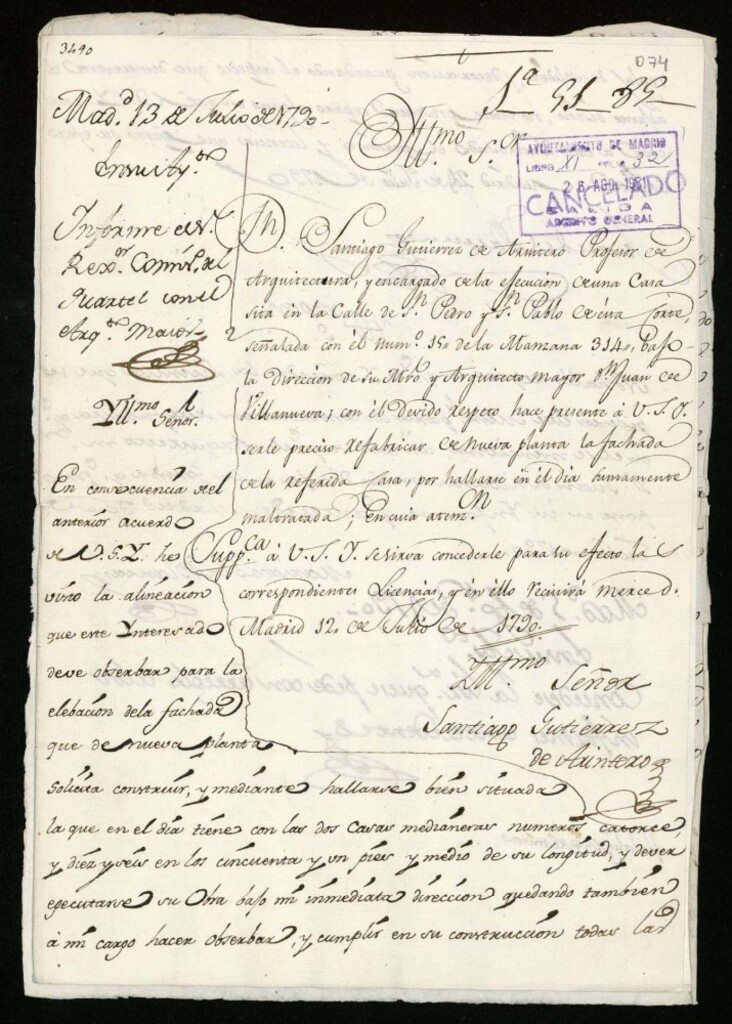 3490
074
1ª 51 89
Mad.d 13 de Julio de 1790
Yll.mo S.or
AYUNTAMIENTO DE MADRID
LIBRO XI FOLIO 32
26 AGO. 1981
CANCELADO
SALIDA
ARCHIVO GENERAL
En su Ay.to
Informe el S.r
Rex.or Comis.o del
Quartel con el
Arq.to Maior
D. Santiago Gutierrez de Arintero Profesor de
Arquitectura, y encargado de la ejecucion de una Casa
sita en la Calle de S.n Pedro y S.n Pablo de esta Corte,
señalada con él num.o 15 de la Manzana 314, bajo
la Direccion de su Mtro y Arquitecto mayor D.n Juan de
Villanueva; con él devido respeto hace presente à V.S.I.
serle preciso refabricar de nueva planta la fachada
de la referida Casa, por hallarse en él dia sumamente
maltratada; En cuia atem.on
Supp.ca à V.S.I. se sirva concederle para su efecto las
correspondientes Licencias, y én ello recivirá merced.
Madrid 12 de Julio de 1790.
Yll.mo Señor
Santiago Gutierrez
de Arintero
Yll.mo Señor.
En consecuencia del
anterior acuerdo
de V.S.I. he
visto la alineación
que este Ynteresado
deve obserbar para la
elebación dela fachada
que de nueva planta
solicita construir, y mediante hallarse bien situada
la que en el día tiene con las dos Casas medianeras numeros catorce,
y diez y seis en los cincuenta y un pies y medio de su longitud, y dever
egecutarse su Obra bajo mi inmediata dirección quedando también
à mi cargo hacer obserbar, y cumplir en su construcción todas las